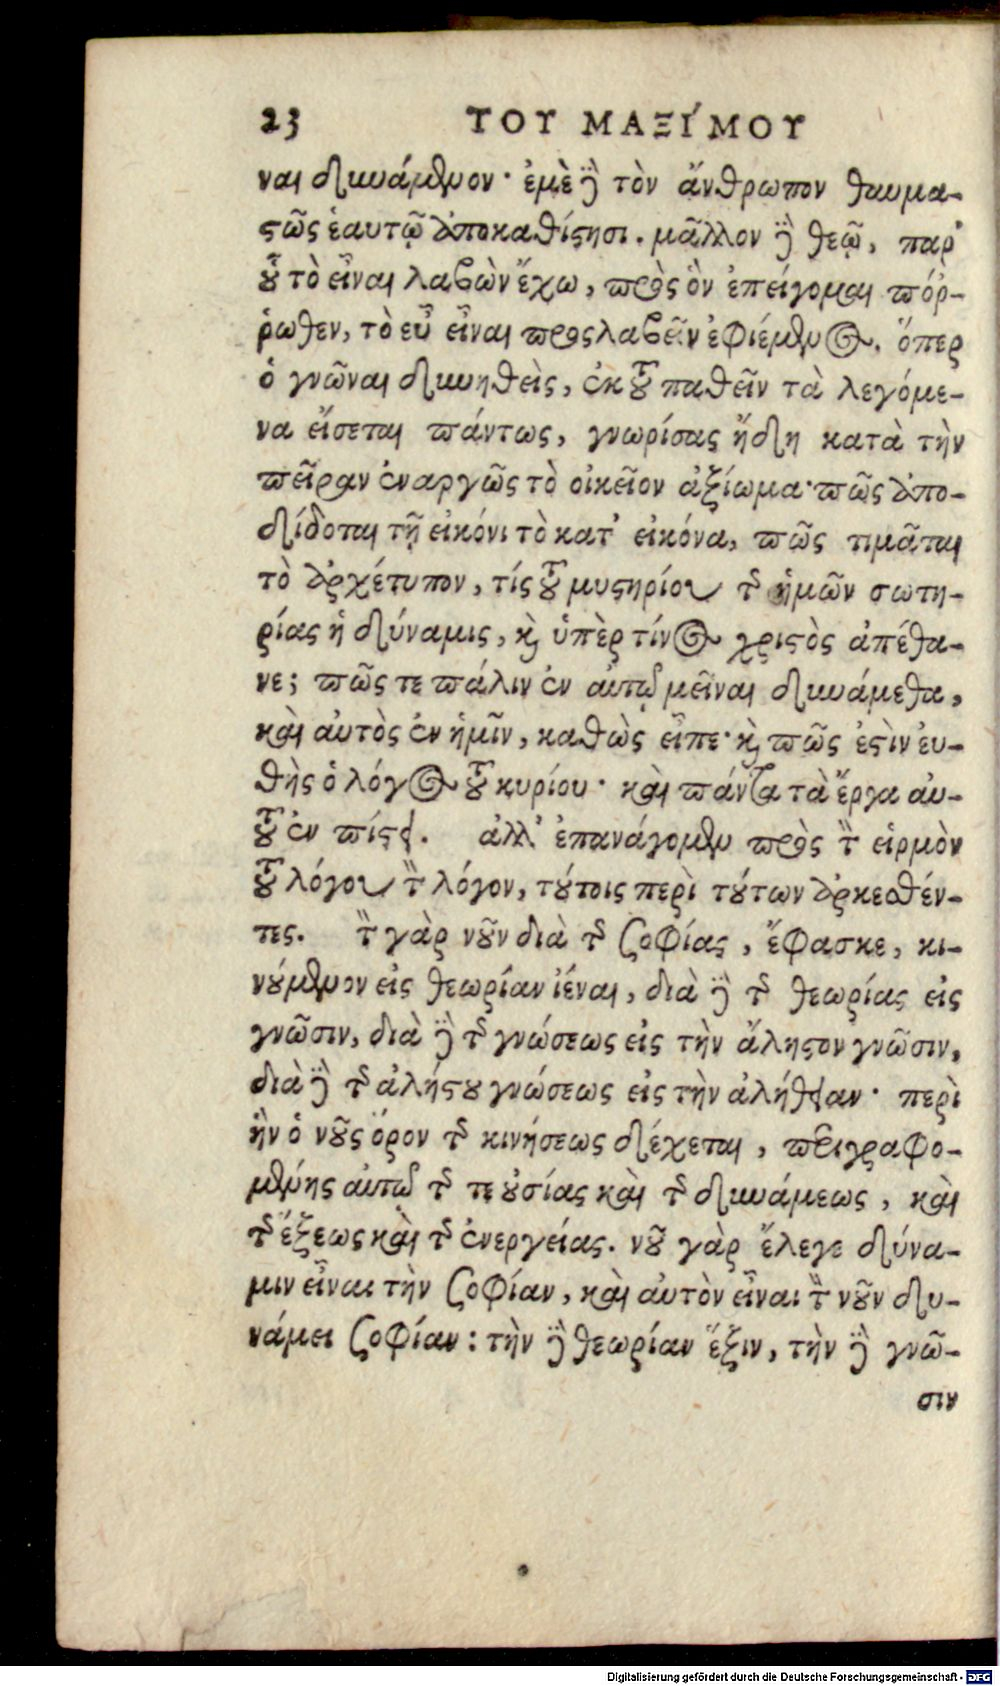 23 ΤΟΥ ΜΑΞΙ´ΜΟΥ
ναι δυνάμενον· ἐμὲ δὲ τὸν ἄνθρωπον θαυμα-
στῶς ἑαυτῷ ἀποκαθίστησι. μᾶλλον δὲ θεῷ, παρ'
οὗ τὸ εἶναι λαβὼν ἔχω, πρὸς ὃν ἐπείγομαι πόρ-
ρωθεν, τὸ εὖ εἶναι προςλαβεῖν ἐφιέμενος. ὅπερ
ὁ γνῶναι δυνηθεὶς, ἐκ τοῦ παθεῖν τὰ λεγόμε-
να εἴσεται πάντως, γνωρίσας ἤδη κατὰ τὴν
πεῖραν ἐναργῶς τὸ οἰκεῖον ἀξίωμα· πῶς ἀπο-
δίδοται τῇ εἰκόνι τὸ κατ' εἰκόνα, πῶς τιμᾶται
τὸ ἀρχέτυπον, τίς τοῦ μυστηρίου τῆς ἡμῶν σωτη-
ρίας ἡ δύναμις, καὶ ὑπὲρ τίνος χριστὸς ἀπέθα-
νε; πῶς τε πάλιν ἐν αὐτῷ μεῖναι δυνάμεθα,
καὶ αὐτὸς ἐν ἡμῖν, καθὼς εἶπε· καὶ πῶς ἐστὶν εὐ-
θὴς ὁ λόγος τοῦ κυρίου· καὶ πάντα τὰ ἔργα αὐ-
τοῦ ἐν πίστει. ἀλλ' ἐπανάγομεν πρὸς τὸν εἱρμὸν
τοῦ λόγου τὸν λόγον, τούτοις περὶ τούτων ἀρκεσθέν-
τες. τὸν γὰρ νοῦν διὰ τῆς σοφίας, ἔφασκε, κι-
νούμενον εἰς θεωρίαν ἰέναι, διὰ δὲ τῆς θεωρίας εἰς
γνῶσιν, διὰ δὲ τῆς γνώσεως εἰς τὴν ἄληστον γνῶσιν,
διὰ δὲ τῆς ἀλήστου γνώσεως εἰς τὴν ἀλήθειαν· περὶ
ἣν ὁ νοῦς ὅρον τῆς κινήσεως δέχεται, περιγραφο-
μένης αὐτῷ τῆς τε οὐσίας καὶ τῆς δυνάμεως, καὶ
τῆς ἕξεως καὶ τῆς ἐνεργείας. νοῦ γὰρ ἔλεγε δύνα-
μιν εἶναι τὴν σοφίαν, καὶ αὐτὸν εἶναι τὸν νοῦν δυ-
νάμει σοφίαν: τὴν δὲ θεωρίαν ἕξιν, τὴν δὲ γνῶ-
σιν
Digitalisierung gefördert durch die Deutsche Forschungsgemeinschaft - DFG